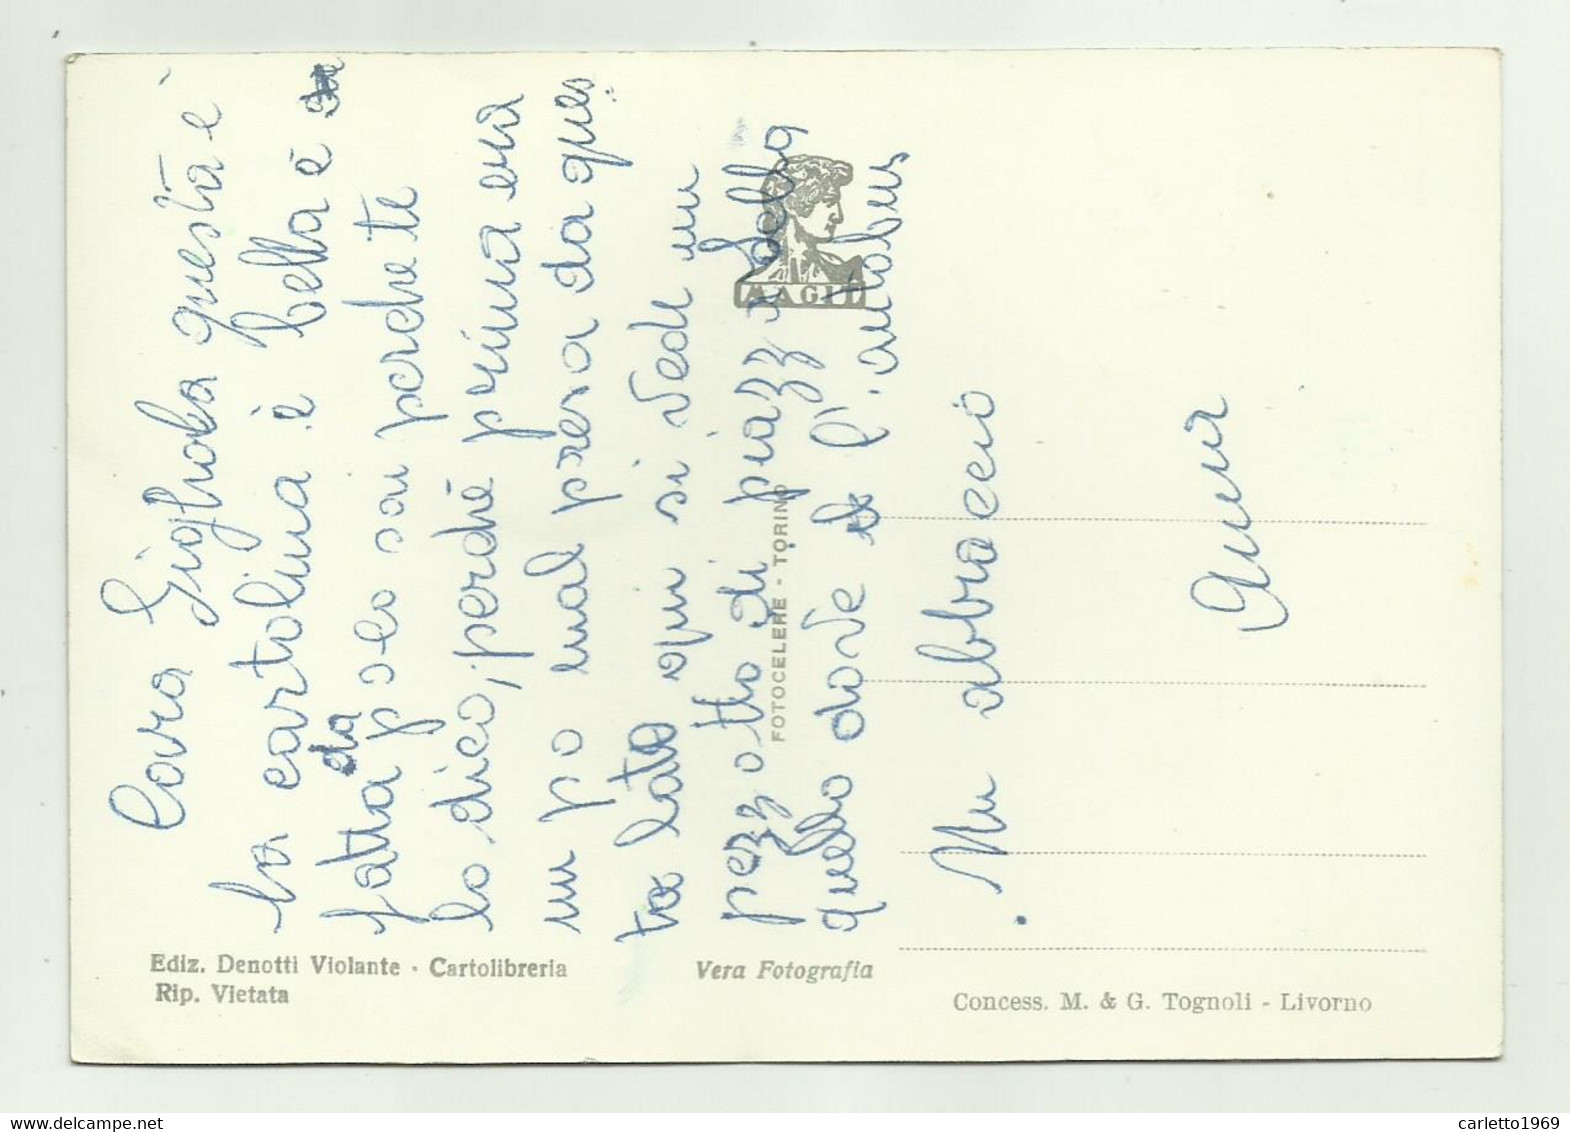 Cara Gigliola questa è
la cartolina è bella è
fatta da peso sai perché te
lo dico, perché prima era
un po mal presa da ques
ta lato qui si vede un
pezzotto di piazza della
quello dove l'autobus
Un abbraccio
Anna
MAGIT
FOTOCELERE - TORINO
Ediz. Denotti Violante - Cartolibreria
Rip. Vietata
Vera Fotografia
Concess. M. & G. Tognoli - Livorno
carletto1969